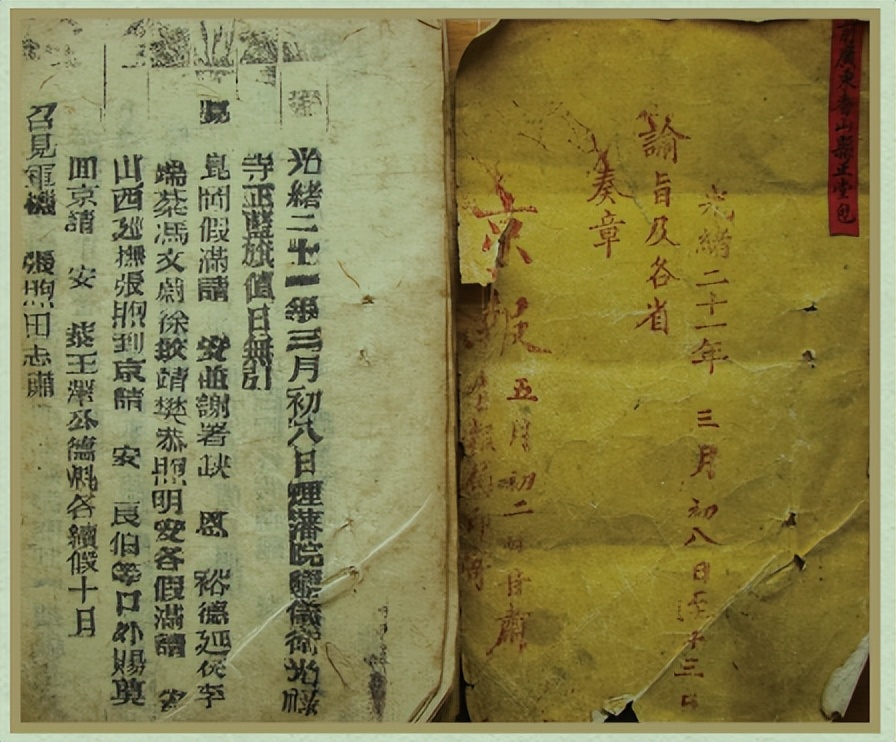 廣東香山縣正堂包
光緒二十一年 三月初八日至十三日
諭旨及各省
奏章
京報
五月初二
光緒二十一年三月初八日理藩院鑾儀衛光祿
寺正藍旗值日無引
見 崑岡假滿請 安並謝署缺 恩 裕德延侯李
端棻馮文蔚徐致靖樊恭煦明安各假滿請 安
山西巡撫張煦到京請 安 良伯等口外賜奠
回京請 安 恭王澤公德魁各續假十日
召見軍機 張煦 田志肅